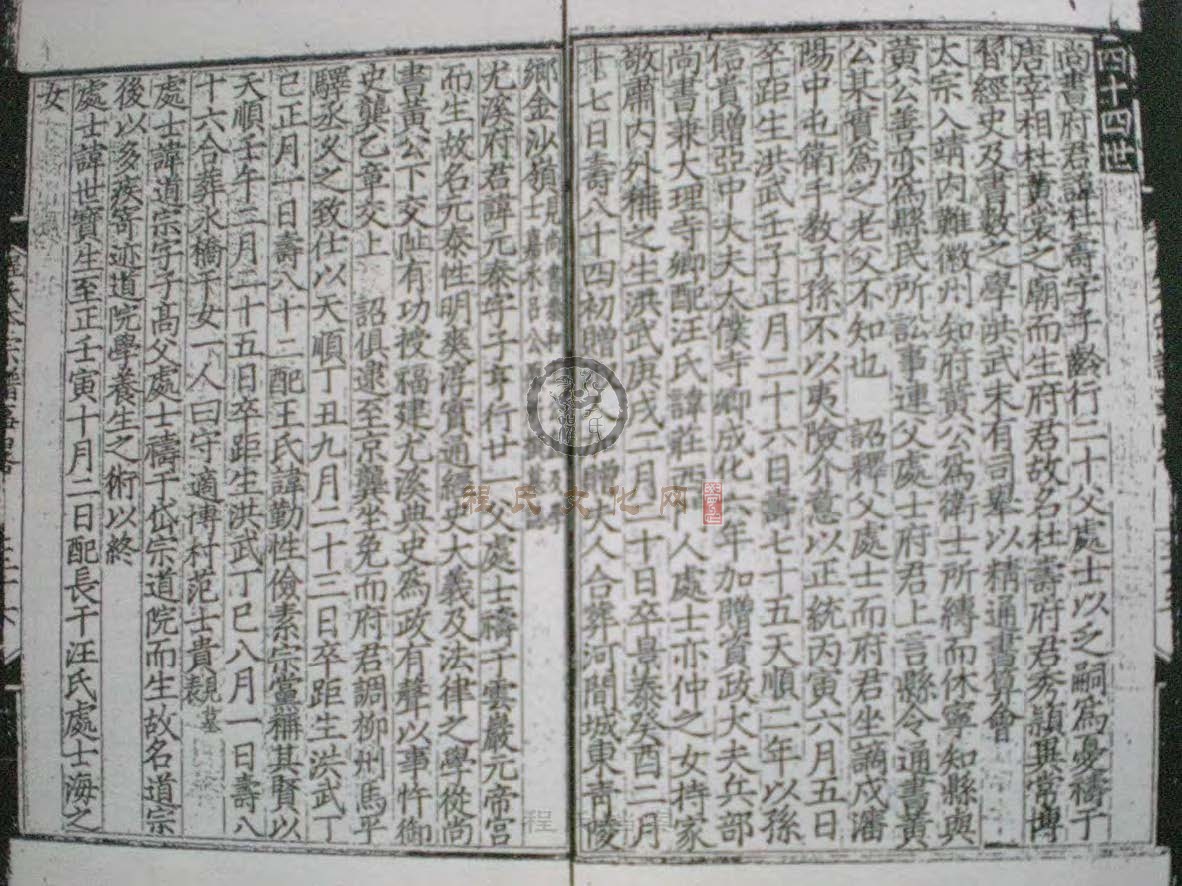 四十四世
尚書府君諱杜壽字子齡行二十父處士以乏嗣為憂禱于
唐宰相杜黃裳之廟而生府君故名杜壽府君秀穎異常博
習經史及書數之學洪武末有司舉以精通書算會
太宗入靖內難徽州知府黃公為衛士所縛而休寧知縣與
黃公善亦為縣民所訟事連父處士府君上言縣令通書黃
公某實為之老父不知也 詔釋父處士而府君坐謫戍瀋
陽中屯衛手教子孫不以夷險介意以正統丙寅六月五日
卒距生洪武壬子正月二十六日壽七十五天順二年以孫
信貴贈亞中大夫太僕寺卿成化六年加贈資政大夫兵部
尚書兼大理寺卿配汪氏諱莊 人處士亦仲之女持家
敬肅內外稱之生洪武庚戌二月二十日卒景泰癸酉二月
十七日壽八十四初贈 人 贈夫人合葬河間城東青陵
鄉金沙嶺
尤溪府君諱元泰字子亨行廿一父處士禱于雲巖元帝宮
而生故名元泰性明爽淳實通經史大義及法律之學從尚
書黃公下交阯有功授福建尤溪典史為政有聲以事忤御
史龔乙章交上 詔俱逮至京龔坐免而府君調柳州馬平
驛丞久之致仕以天順丁丑九月二十三日卒距生洪武丁
巳正月一日壽八十二配王氏諱勐性儉素宗黨稱其賢以
天順壬午二月二十五日卒距生洪武丁巳八月一日壽八
十六合葬水橋干女一人曰守適博村范士貴
處士諱道宗字子高父處士禱于岱宗道院而生故名道宗
後以多疾寄迹道院學養生之術以終
處士諱世寶生至正壬寅十月二日配長干汪氏處士海之
女
程氏文化网